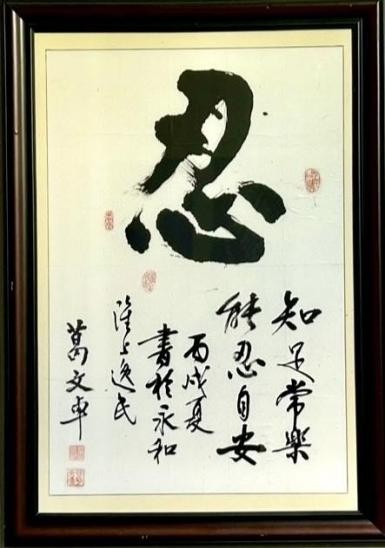 忍
知足常樂
能忍自安
丙戌夏
書於永和
淮上逸民
葛文車